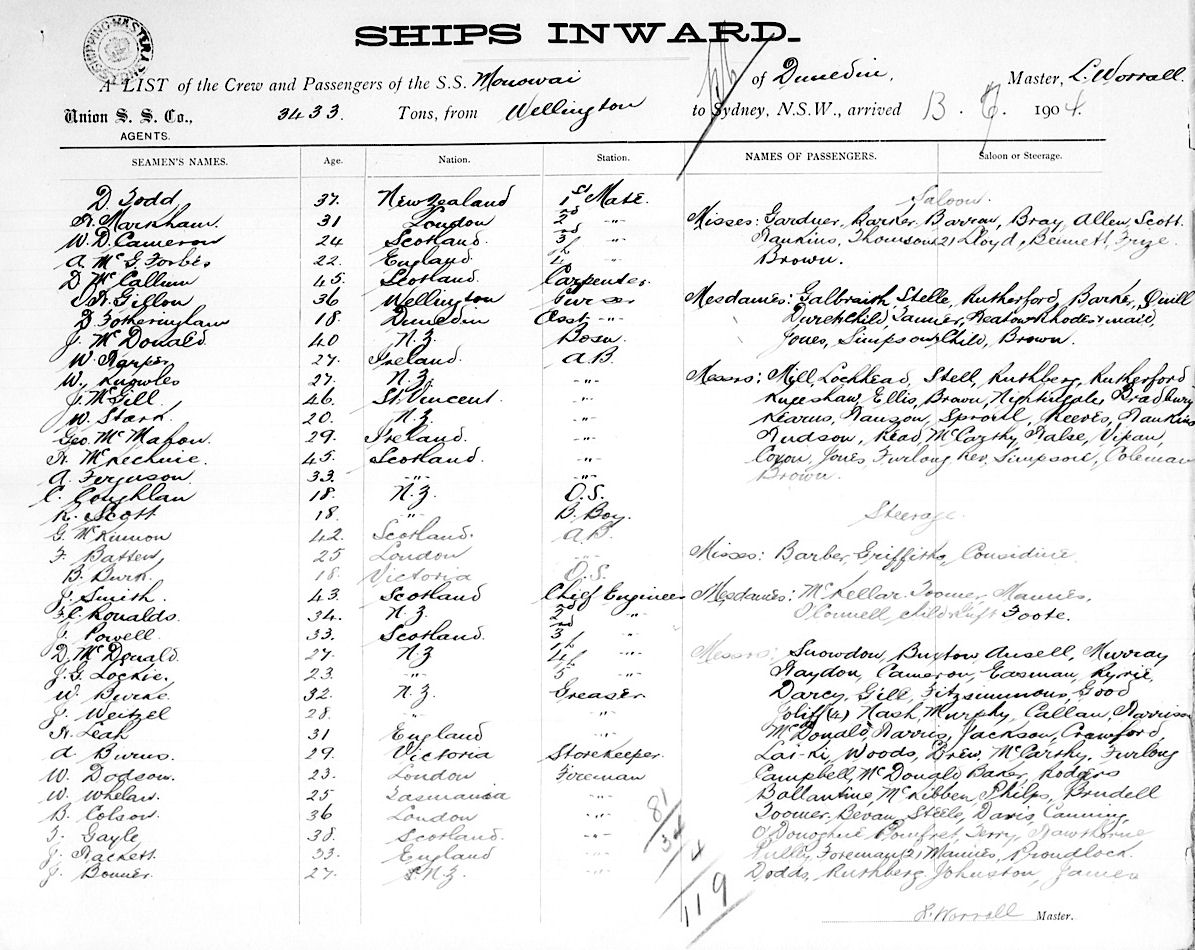 SHIPS INWARD.
A LIST of the Crew and Passengers of the S.S. Monowai of Dunedin, Master, L. Worrall.
Union S. S. Co., 3433. Tons, from Wellington to Sydney, N.S.W., arrived 13. 1904.
AGENTS.
SEAMEN'S NAMES. Age. Nation. Station. NAMES OF PASSENGERS. Saloon or Steerage.
D. Todd 37. New Zealand 1st Mate. Saloon.
H. Markham 31 London 2nd " Misses: Gardner, Barker, Barron, Bray, Allen, Scott.
W. D. Cameron 24 Scotland. 3rd " Hankins, Thomson (2) Lloyd, Bennett,
A McG. Forbes 22. England 4th " Brown.
D McCallum 45. Scotland. Carpenter.
Gillon 36 Wellington Purser Mesdames: Galbraith, Stelle, Rutherford, Barke, Quill
D. Fotheringham 18. Dunedin Asst. " Child, Tanner, Heaton Rhodes & maid,
J. McDonald 40 N.Z. Bosn. Jones, Simpson & Child, Brown.
W. Harper 27. Ireland. A.B.
W. Knowles 27. N.Z. " Messrs: Mill, Lochhead, Stell, Ruthberg, Rutherford
J. McGill 46. St. Vincent. " Ellis, Brown, Nightingale, Bradbury
W. Stark 20. N.Z. " Kearns, Hanson, Sproul, Reeves, Hankins
Geo. McMahon. 29. Ireland. " Hudson, Read, McCarthy, Halse, Vipan,
H. McKechnie. 45. Scotland. " Coxon, Jones, Furlong, Rev. Simpson, Coleman
A. Ferguson 33. " " Brown.
C. Coughlan 18. N.Z. O.S.
R. Scott 18. " B. Boy. Steerage.
G. McKinnon 42. Scotland. A.B.
F. Batten, 25 London " Misses: Barber, Griffiths, Considine
B. Burn. 18. Victoria O.S.
J. Smith. 43. Scotland Chief Engineer Mesdames: McKellar, Toomer, Mannes,
F.C. Ronalds. 34. N.Z. 2nd " O'Connell, child & Foote.
J. Powell. 33. Scotland. 3rd "
D. McDonald. 27. N.Z. 4th " Messrs: Snowdon, Buxton, Ansell, Murray
J.G. Lockie, 23. " 5th " Haydon, Cameron, Easman, Pyrie,
W. Burke. 32. N.Z. Greaser Darcy, Gill, Fitzsimmons, Good
J. Weitzel 28. " " Joliff (4) Nash, Murphy, Callan, Harrison
H. Leah 31 England " McDonald, Harris, Jackson, Crawford,
A Burns. 29. Victoria Storekeeper. Lai-Ki, Woods, Brew, McCarthy, Furlong
W. Dodson. 23. London Foreman Campbell, McDonald, Baker, Rodgers
W. Whelan. 25 Tasmania " Ballantine, McKibben, Philps, Brudell
B. Colson. 36 London " Toomer, Bevan, Steele, Davis, Canning,
T. Gayle, 38. Scotland. " O'Donoghue, Pomfret, Terry, Hawthorne
J. Hackett. 33. England " Pulley, Foreman (2) Mannes, Proudlock.
J. Bonner. 27. N.Z. " Dodds, Ruthberg, Johnston, James
81
34
4
119
L. Worrall Master.